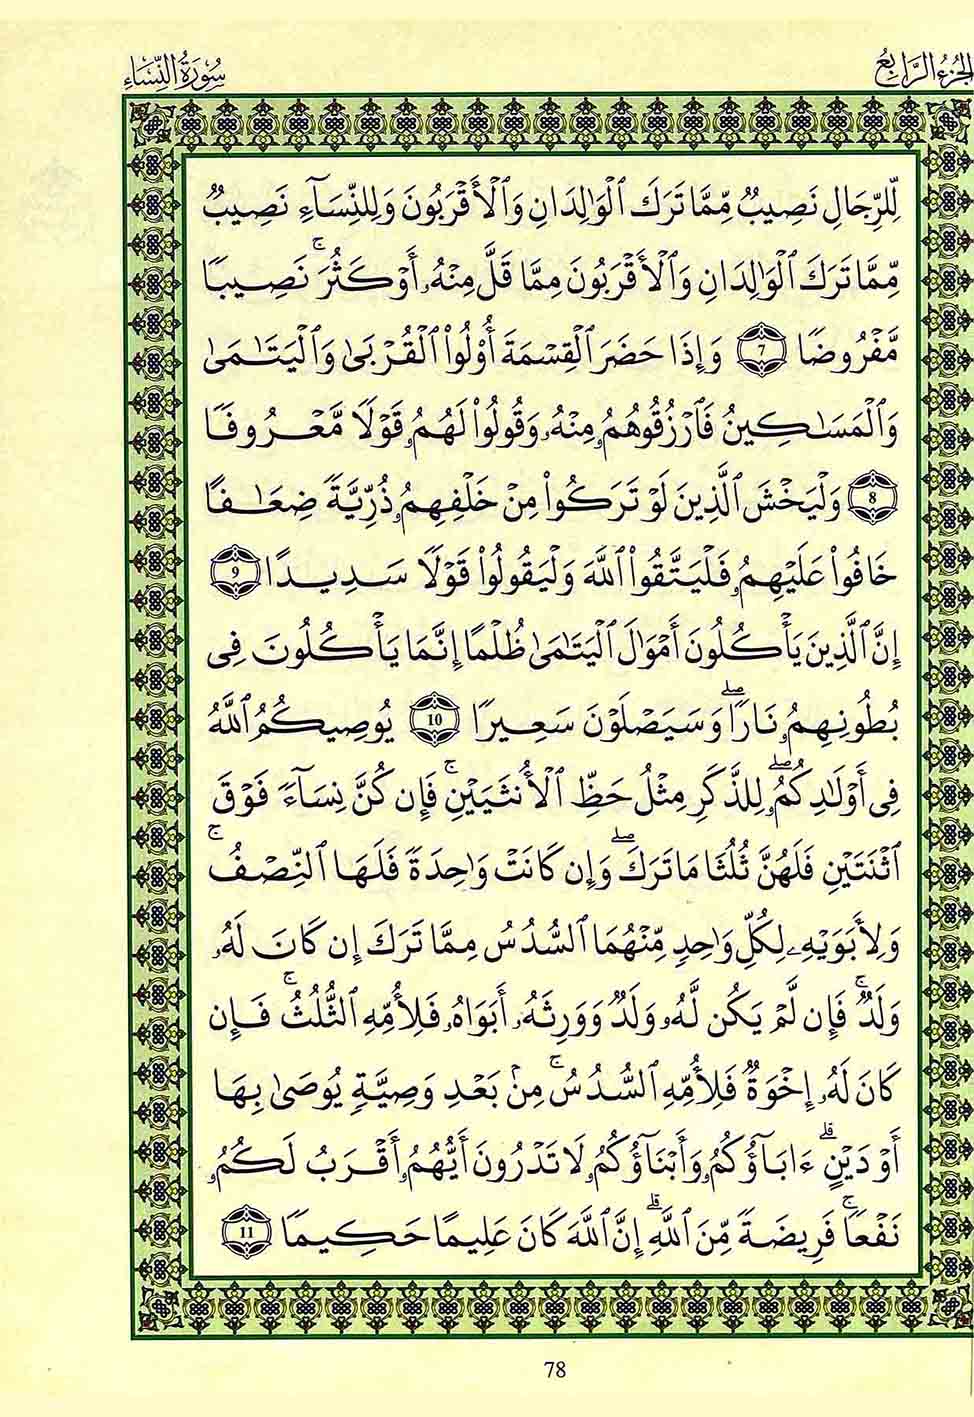 الجُزْءُ الرَّابِعُ
سُورَةُ النِّسَاءِ
لِّلرِّجَالِ نَصِيبٌ مِّمَّا تَرَكَ ٱلْوَٰلِدَانِ وَٱلْأَقْرَبُونَ وَلِلنِّسَآءِ نَصِيبٌ
مِّمَّا تَرَكَ ٱلْوَٰلِدَانِ وَٱلْأَقْرَبُونَ مِمَّا قَلَّ مِنْهُۥ أَوْ كَثُرَ ۚ نَصِيبًا
مَّفْرُوضًا 7 وَإِذَا حَضَرَ ٱلْقِسْمَةَ أُو۟لُوا۟ ٱلْقُرْبَىٰ وَٱلْيَتَٰمَىٰ
وَٱلْمَسَٰكِينُ فَٱرْزُقُوهُمُۥ مِنْهُۥ وَقُولُوا۟ لَهُمُۥ قَوْلًا مَّعْرُوفًا
8 وَلْيَخْشَ ٱلَّذِينَ لَوْ تَرَكُوا۟ مِنْ خَلْفِهِمُۥ ذُرِّيَّةً ضِعَٰفًا
خَافُوا۟ عَلَيْهِمُۥ فَلْيَتَّقُوا۟ ٱللَّهَ وَلْيَقُولُوا۟ قَوْلًا سَدِيدًا 9
إِنَّ ٱلَّذِينَ يَأْكُلُونَ أَمْوَٰلَ ٱلْيَتَٰمَىٰ ظُلْمًا إِنَّمَا يَأْكُلُونَ فِى
بُطُونِهِمُۥ نَارًا ۖ وَسَيَصْلَوْنَ سَعِيرًا 10 يُوصِيكُمُ ٱللَّهُ
فِى أَوْلَٰدِكُمُۥ ۖ لِلذَّكَرِ مِثْلُ حَظِّ ٱلْأُنثَيَيْنِ ۚ فَإِن كُنَّ نِسَآءً فَوْقَ
ٱثْنَتَيْنِ فَلَهُنَّ ثُلُثَا مَا تَرَكَ ۖ وَإِن كَانَتْ وَٰحِدَةً فَلَهَا ٱلنِّصْفُ ۚ
وَلِأَبَوَيْهِۦ لِكُلِّ وَٰحِدٍ مِّنْهُمَا ٱلسُّدُسُ مِمَّا تَرَكَ إِن كَانَ لَهُۥ
وَلَدٌ ۚ فَإِن لَّمْ يَكُن لَّهُۥ وَلَدٌ وَوَرِثَهُۥ أَبَوَاهُۥ فَلِأُمِّهِ ٱلثُّلُثُ ۚ فَإِن
كَانَ لَهُۥ إِخْوَةٌ فَلِأُمِّهِ ٱلسُّدُسُ ۚ مِنۢ بَعْدِ وَصِيَّةٍ يُوصَىٰ بِهَا
أَوْ دَيْنٍ ۗ ءَابَآؤُكُمُۥ وَأَبْنَآؤُكُمُۥ لَا تَدْرُونَ أَيُّهُمُۥ أَقْرَبُ لَكُمُۥ
نَفْعًا ۚ فَرِيضَةً مِّنَ ٱللَّهِ ۗ إِنَّ ٱللَّهَ كَانَ عَلِيمًا حَكِيمًا 11
78